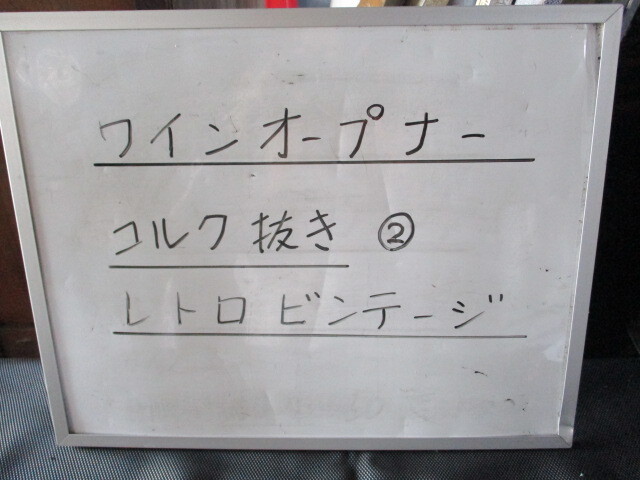 ワインオープナー
コルク抜き ②
レトロ ビンテージ